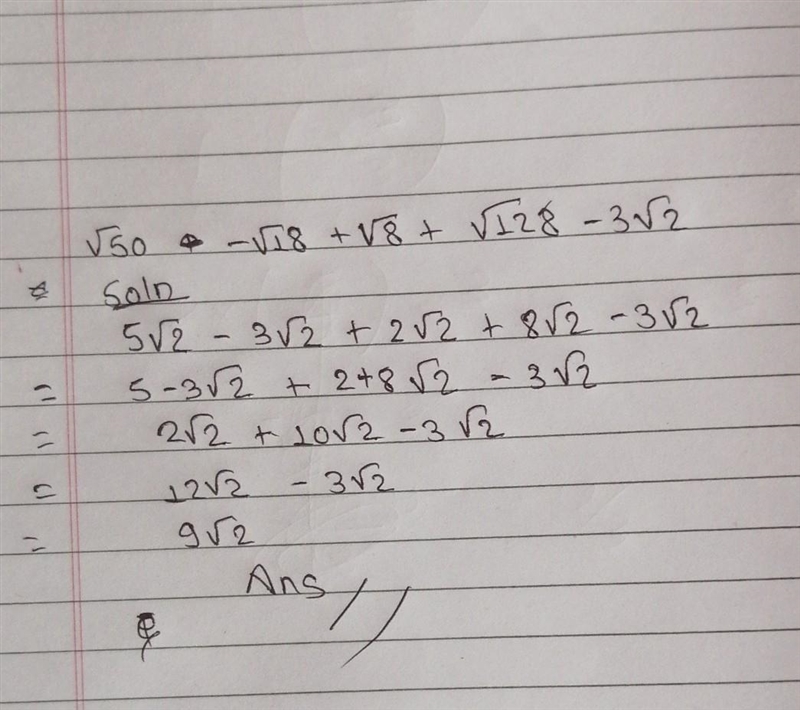 √50 - √18 + √8 + √128 - 3√2
Soln
5√2 - 3√2 + 2√2 + 8√2 - 3√2
= 5-3√2 + 2+8√2 - 3√2
= 2√2 + 10√2 - 3√2
= 12√2 - 3√2
= 9√2
Ans //